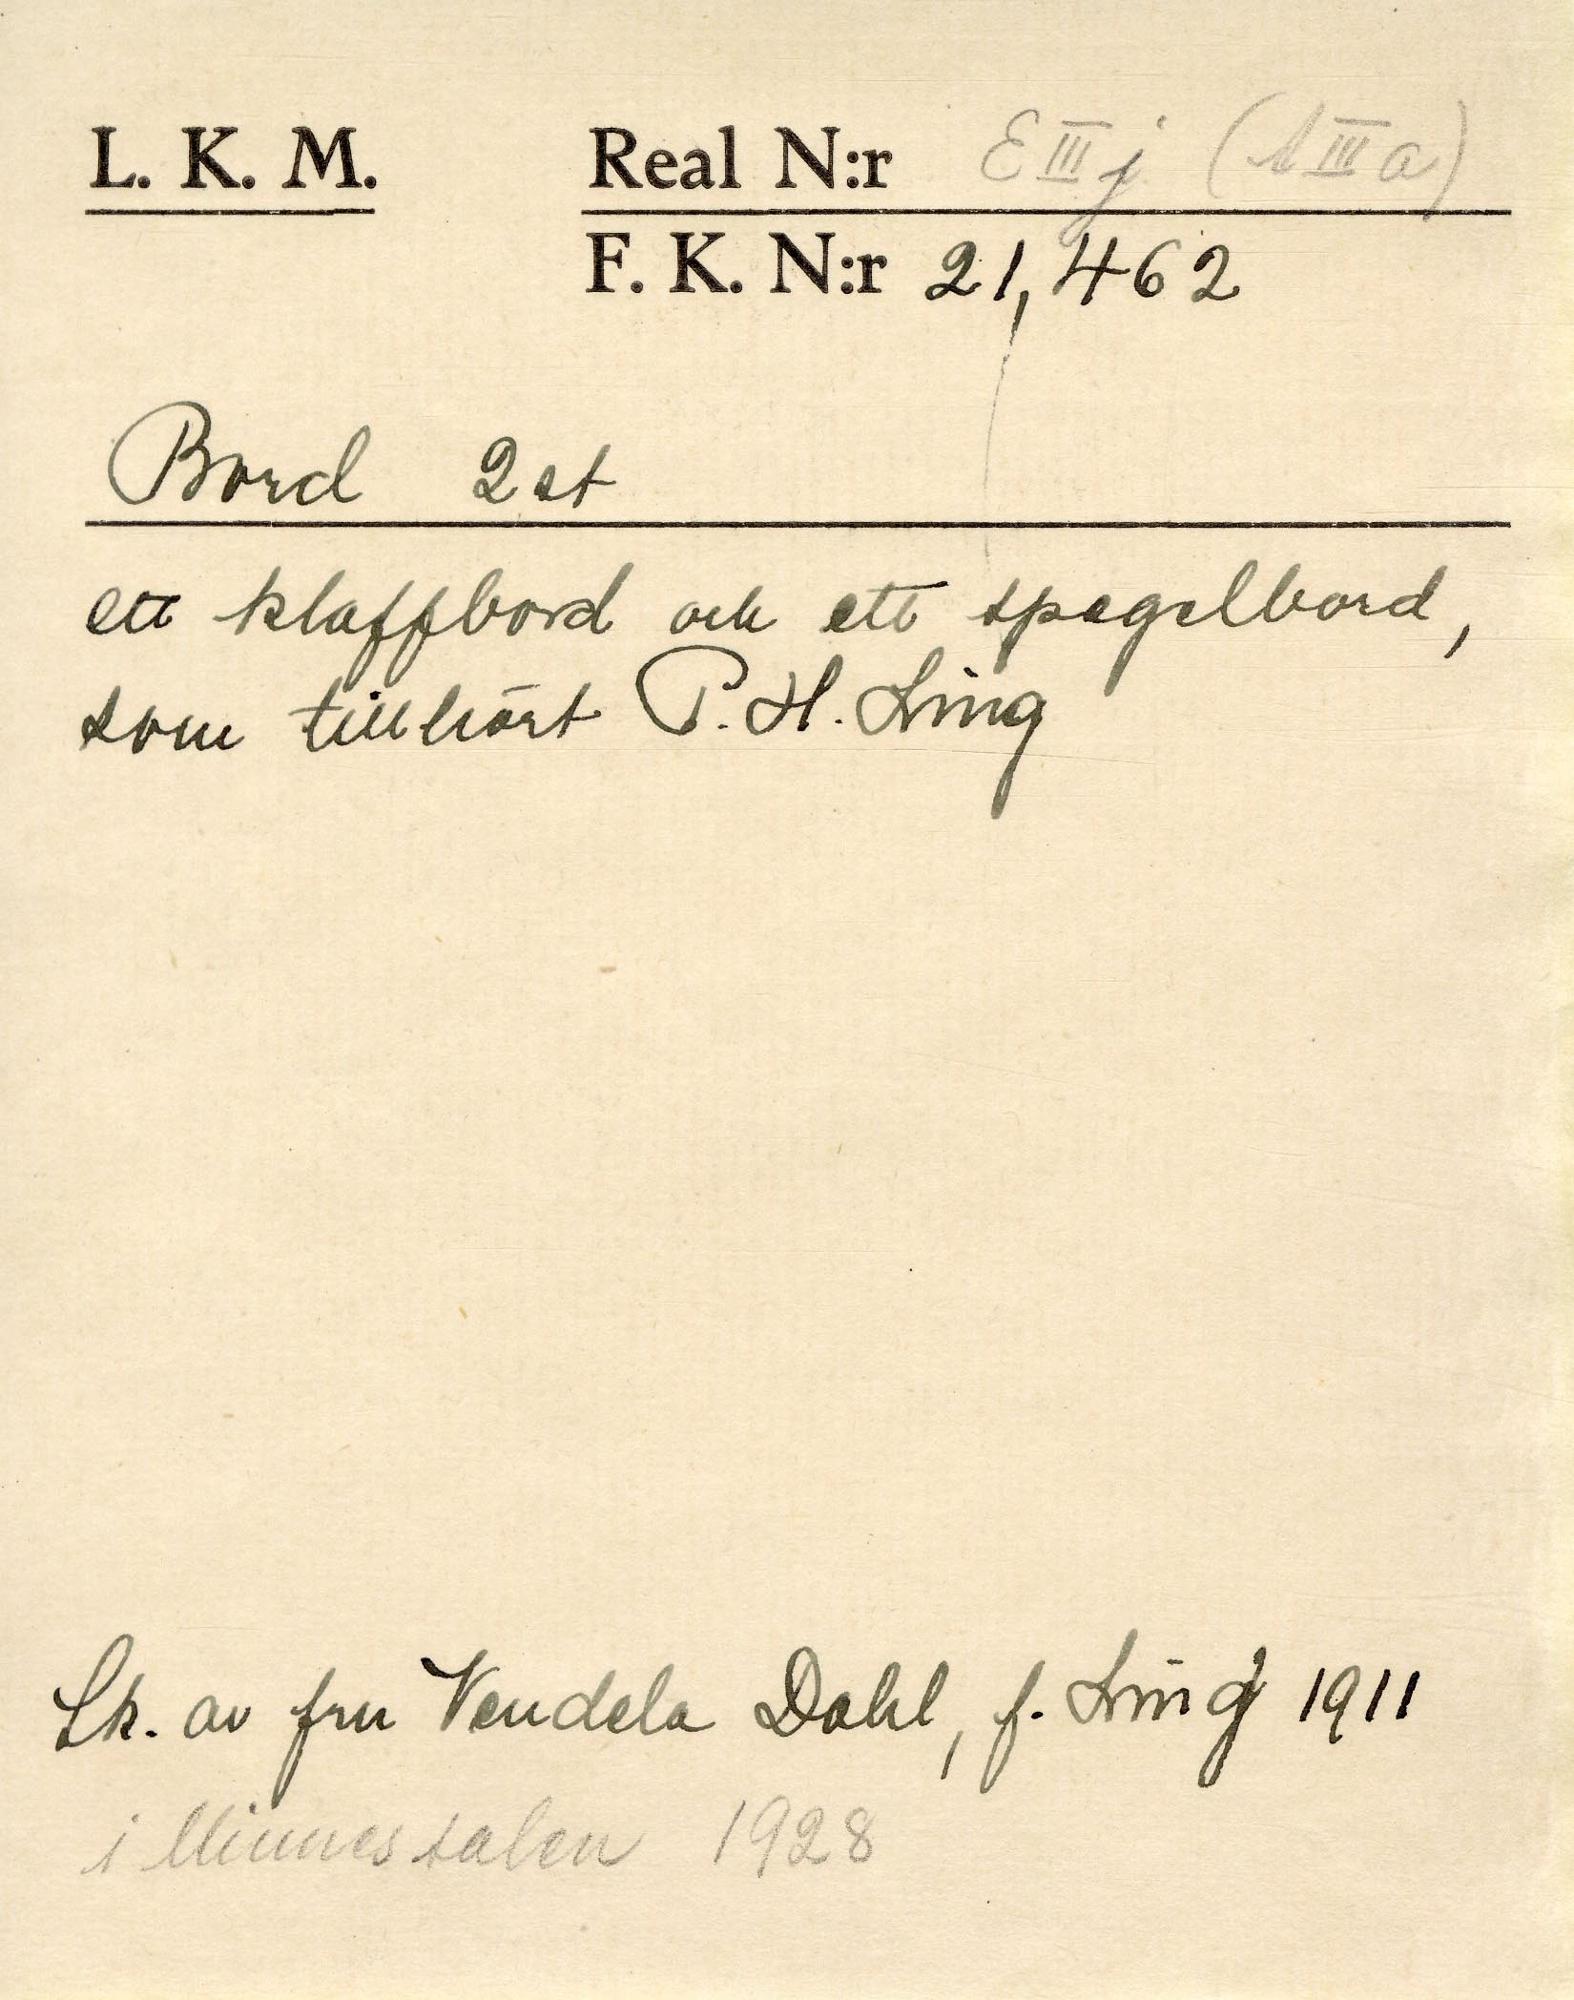 L. K. M.
Real N:r E III j (A III a)
F. K. N:r 21,462
Bord 2 st
ett klaffbord och ett spegelbord,
som tillhört P. H. Ling
Sk. av fru Vendela Dahl, f. Ling 1911
i Minnessalen 1928